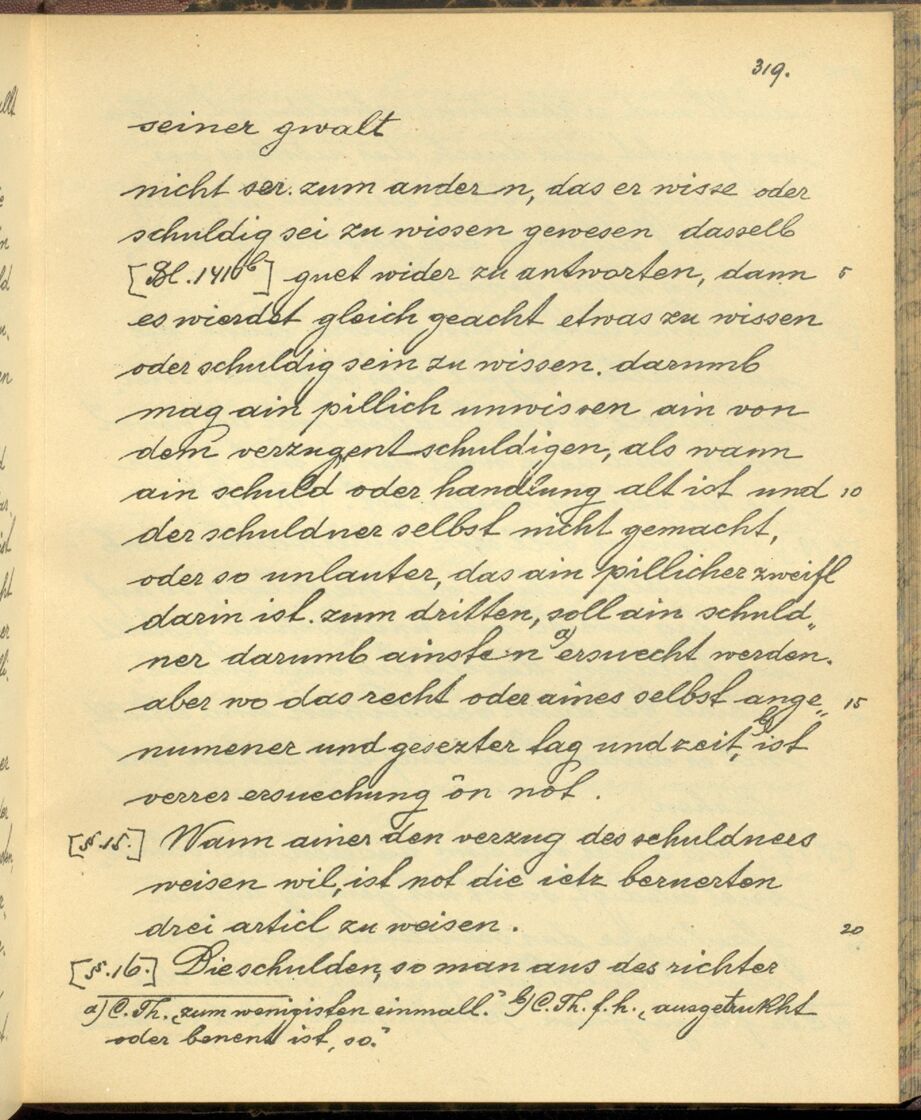 319.
seiner gwalt
nicht ser. zum andern, das er wisse oder
schuldig sei zu wissen gewesen dasselb
[Bl. 141b] guet wider zu antworten, dann 5
es wierdet gleich geacht etwas zu wissen
oder schuldig sein zu wissen. darumb
mag ain pillich unwissen ain von
dem verzug entschuldigen, als wann
ain schuld oder handlung alt ist und 10
der schuldner selbst nicht gemacht,
oder so unlauter, das ain pillicher zweifl
darin ist. zum dritten, soll ain schuld„
ner darumb ainsten a) ersuecht werden.
aber wo das recht oder aines selbst ange„ 15
numener und gesezter tag und zeit, b) ist
verrer ersuechung ôn not.
[§.15.] Wann ainer den verzug des schuldners
weisen wil, ist not die ietz beruerten
drei articl zu weisen. 20
[§.16.] Die schulden, so man aus des richter
a) C. Th. „zum wenigisten einmall." b) C. Th. f. h. „ausgetrukht
oder benent ist, so."